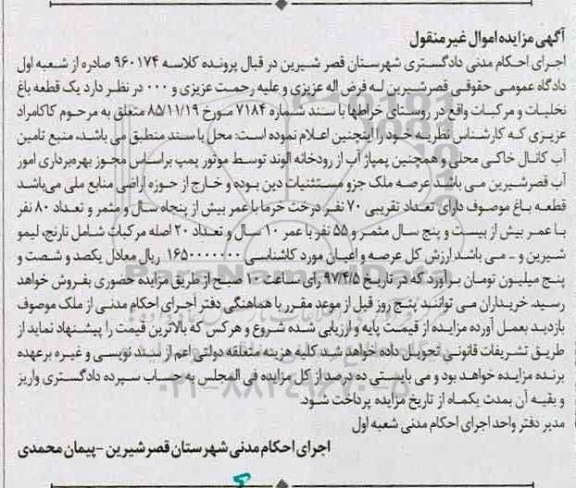 آگهی مزایده اموال غیر منقول
اجرای احکام مدنی دادگستری شهرستان قصر شیرین در قبال پرونده کلاسه ۹۶۰۱۷۴ صادره از شعبه اول
دادگاه عمومی حقوقی قصرشیرین له فرض اله عزیزی و علیه رحمت عزیزی و ۰۰۰ در نظر دارد یک قطعه باغ
نخلیات و مرکبات واقع در روستای خراطها با سند شماره ۷۱۸۴ مورخ ۸۵/۱۱/۱۹ متعلق به مرحوم کاکامراد
عزیزی که کارشناس نظریه خود را اینچنین اعلام نموده است: محل با سند منطبق می باشد، منبع تامین
آب کانال خاکی محلی و همچنین پمپاژ آب از رودخانه الوند توسط موتور پمپ براساس مجوز بهره‌برداری امور
آب قصرشیرین می باشد عرصه ملک جزو مستثنیات دین بوده و خارج از حوزه اراضی منابع ملی می‌باشد
قطعه باغ موصوف دارای تعداد تقریبی ۷۰ نفر درخت خرما با عمر بیش از پنجاه سال و مثمر و تعداد ۸۰ نفر
با عمر بیش از بیست و پنج سال مثمر و ۵۵ نفر با عمر ۱۰ سال و تعداد ۲۰ اصله مرکبات شامل نارنج، لیمو
شیرین و - می باشد ارزش کل عرصه و اعیان مورد کاشناسی ۱۶۵۰۰۰۰۰۰۰ ریال معادل یکصد و شصت و
پنج میلیون تومان برآورد که در تاریخ ۹۷/۴/۵ رای ساعت ۱۰ صبح از طریق مزایده حضوری بفروش خواهد
رسید. خریداران می توانند پنج روز قبل از موعد مقرر با هماهنگی دفتر اجرای احکام مدنی از ملک موصوف
بازدید بعمل آورده مزایده از قیمت پایه و ارزیابی شده شروع و هرکس که بالاترین قیمت را پیشنهاد نماید از
طریق تشریفات قانونی تحویل داده خواهد شد کلیه هزینه متعلقه دولتی اعم از سند نویسی و غیره برعهده
برنده مزایده خواهد بود و می بایستی ده درصد از کل مزایده فی المجلس به حساب سپرده دادگستری واریز
و بقیه آن بمدت یکماه از تاریخ مزایده پرداخت شود.
مدیر دفتر واحد اجرای احکام مدنی شعبه اول
اجرای احکام مدنی شهرستان قصرشیرین - پیمان محمدی
ParsNamadData
۰۲۱-۸۸۳۴۹۶۷۰-۵